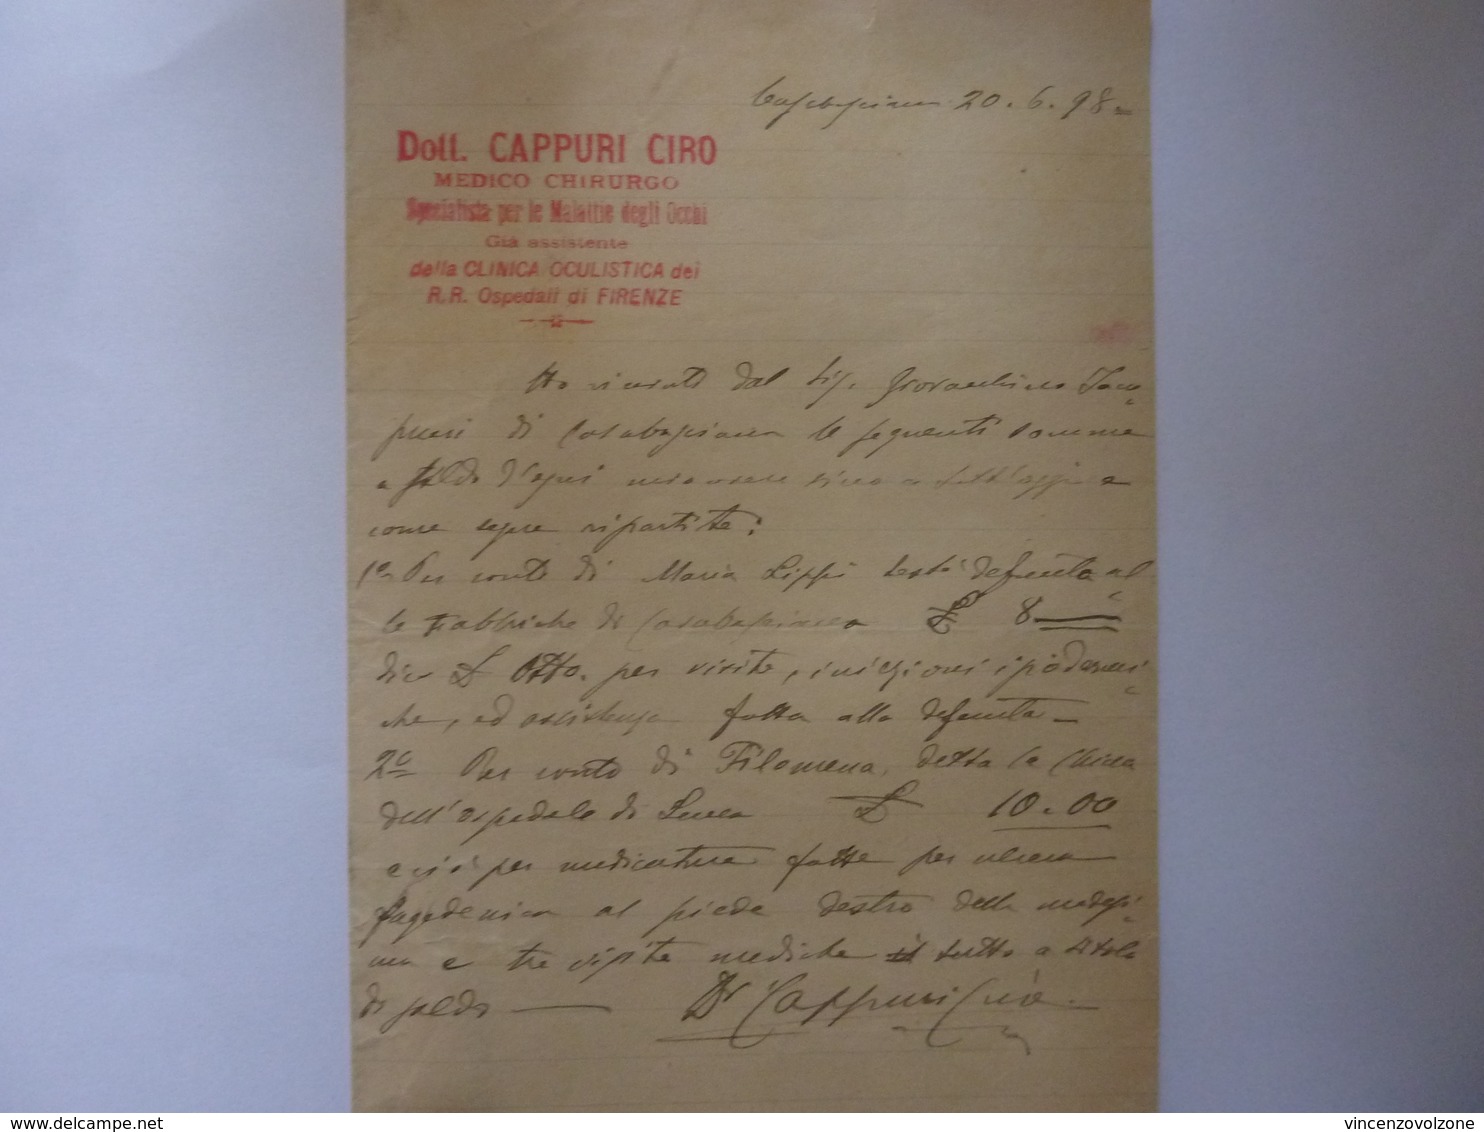 Casabasciana 20.6.98
Dott. CAPPURI CIRO
MEDICO CHIRURGO
Specialista per le Malattie degli Occhi
Già assistente
della CLINICA OCULISTICA dei
R.R. Ospedali di FIRENZE
Ho ricevuto dal Sig. Giovacchino
di Casabasciana le seguenti somme
a saldo d'ogni mio avere sino a tutt'oggi e
come segue ripartite:
1º Per conto di Maria Lippi testè defunta al
le Fabbriche di Casabasciana £ 8
dico £ Otto. per visite, iniezioni ipodermi
che, ed assistenza fatta alla defunta
2º Per conto di Filomena, detta la China
dell'ospedale di Lucca £ 10.00
e ciò per medicature fatte per ulcera
fagedenica al piede destro della medesi
ma e tre visite mediche il tutto a titolo
di saldo Dr Cappuri Ciro
www.delcampe.net
vincenzovolzone